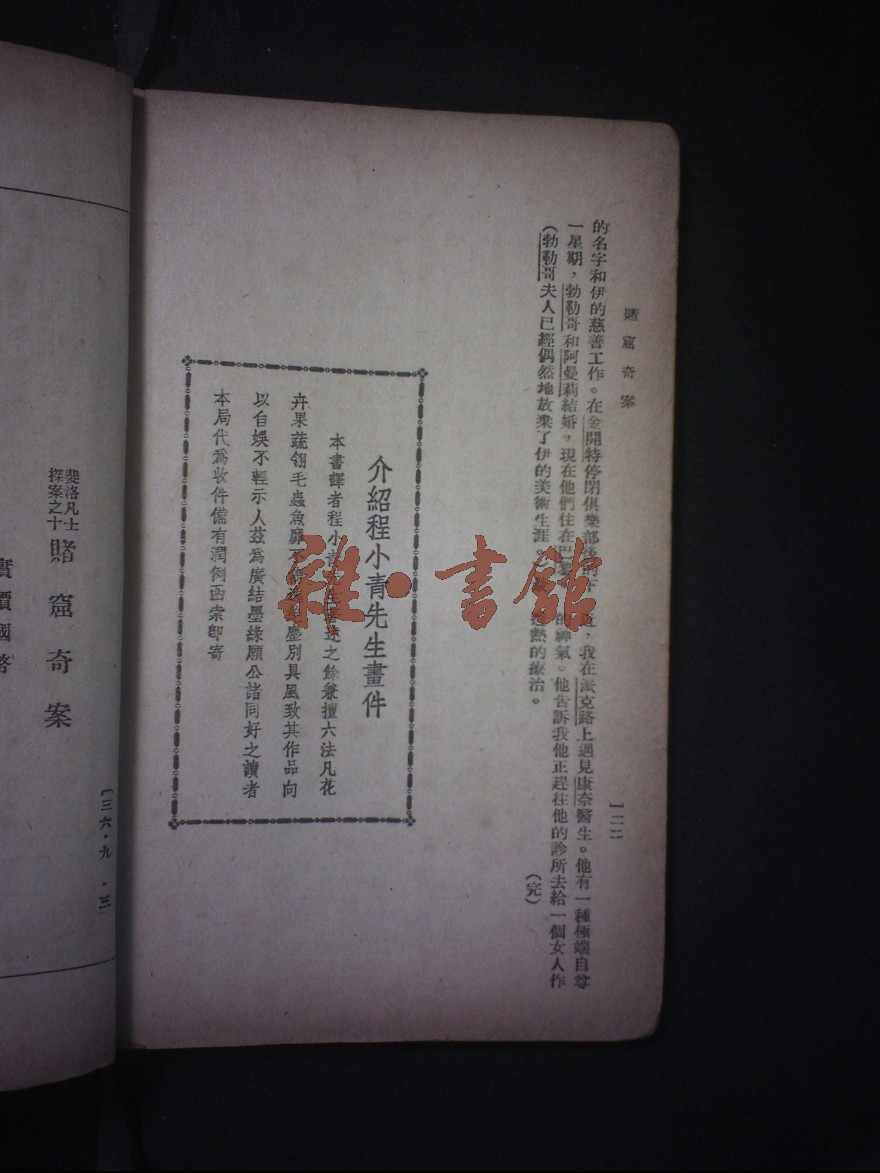 賭窟奇案
一二二
的名字和伊的慈善工作。在金開特停閉俱樂部後的下
一星期，勃勒哥和阿曼莉結婚，現在他們住在巴
（勃勒哥夫人已經偶然地放棄了伊的美術生涯。
，我在派克路上遇見康奈醫生。他有一種極端自尊
的神氣。他告訴我他正趕往他的診所去給一個女人作
熱的療治。
（完）
介紹程小青先生畫件
本書譯者程小青述之餘兼擅六法凡花
卉果蔬翎毛蟲魚靡不塵別具風致其作品向
以自娛不輕示人茲為廣結墨緣願公諸同好之讀者
本局代為收件備有潤例函索即寄
斐洛凡士
探案之十
賭窟奇案
實價國幣
〔三六·九·三〕
雜·書館